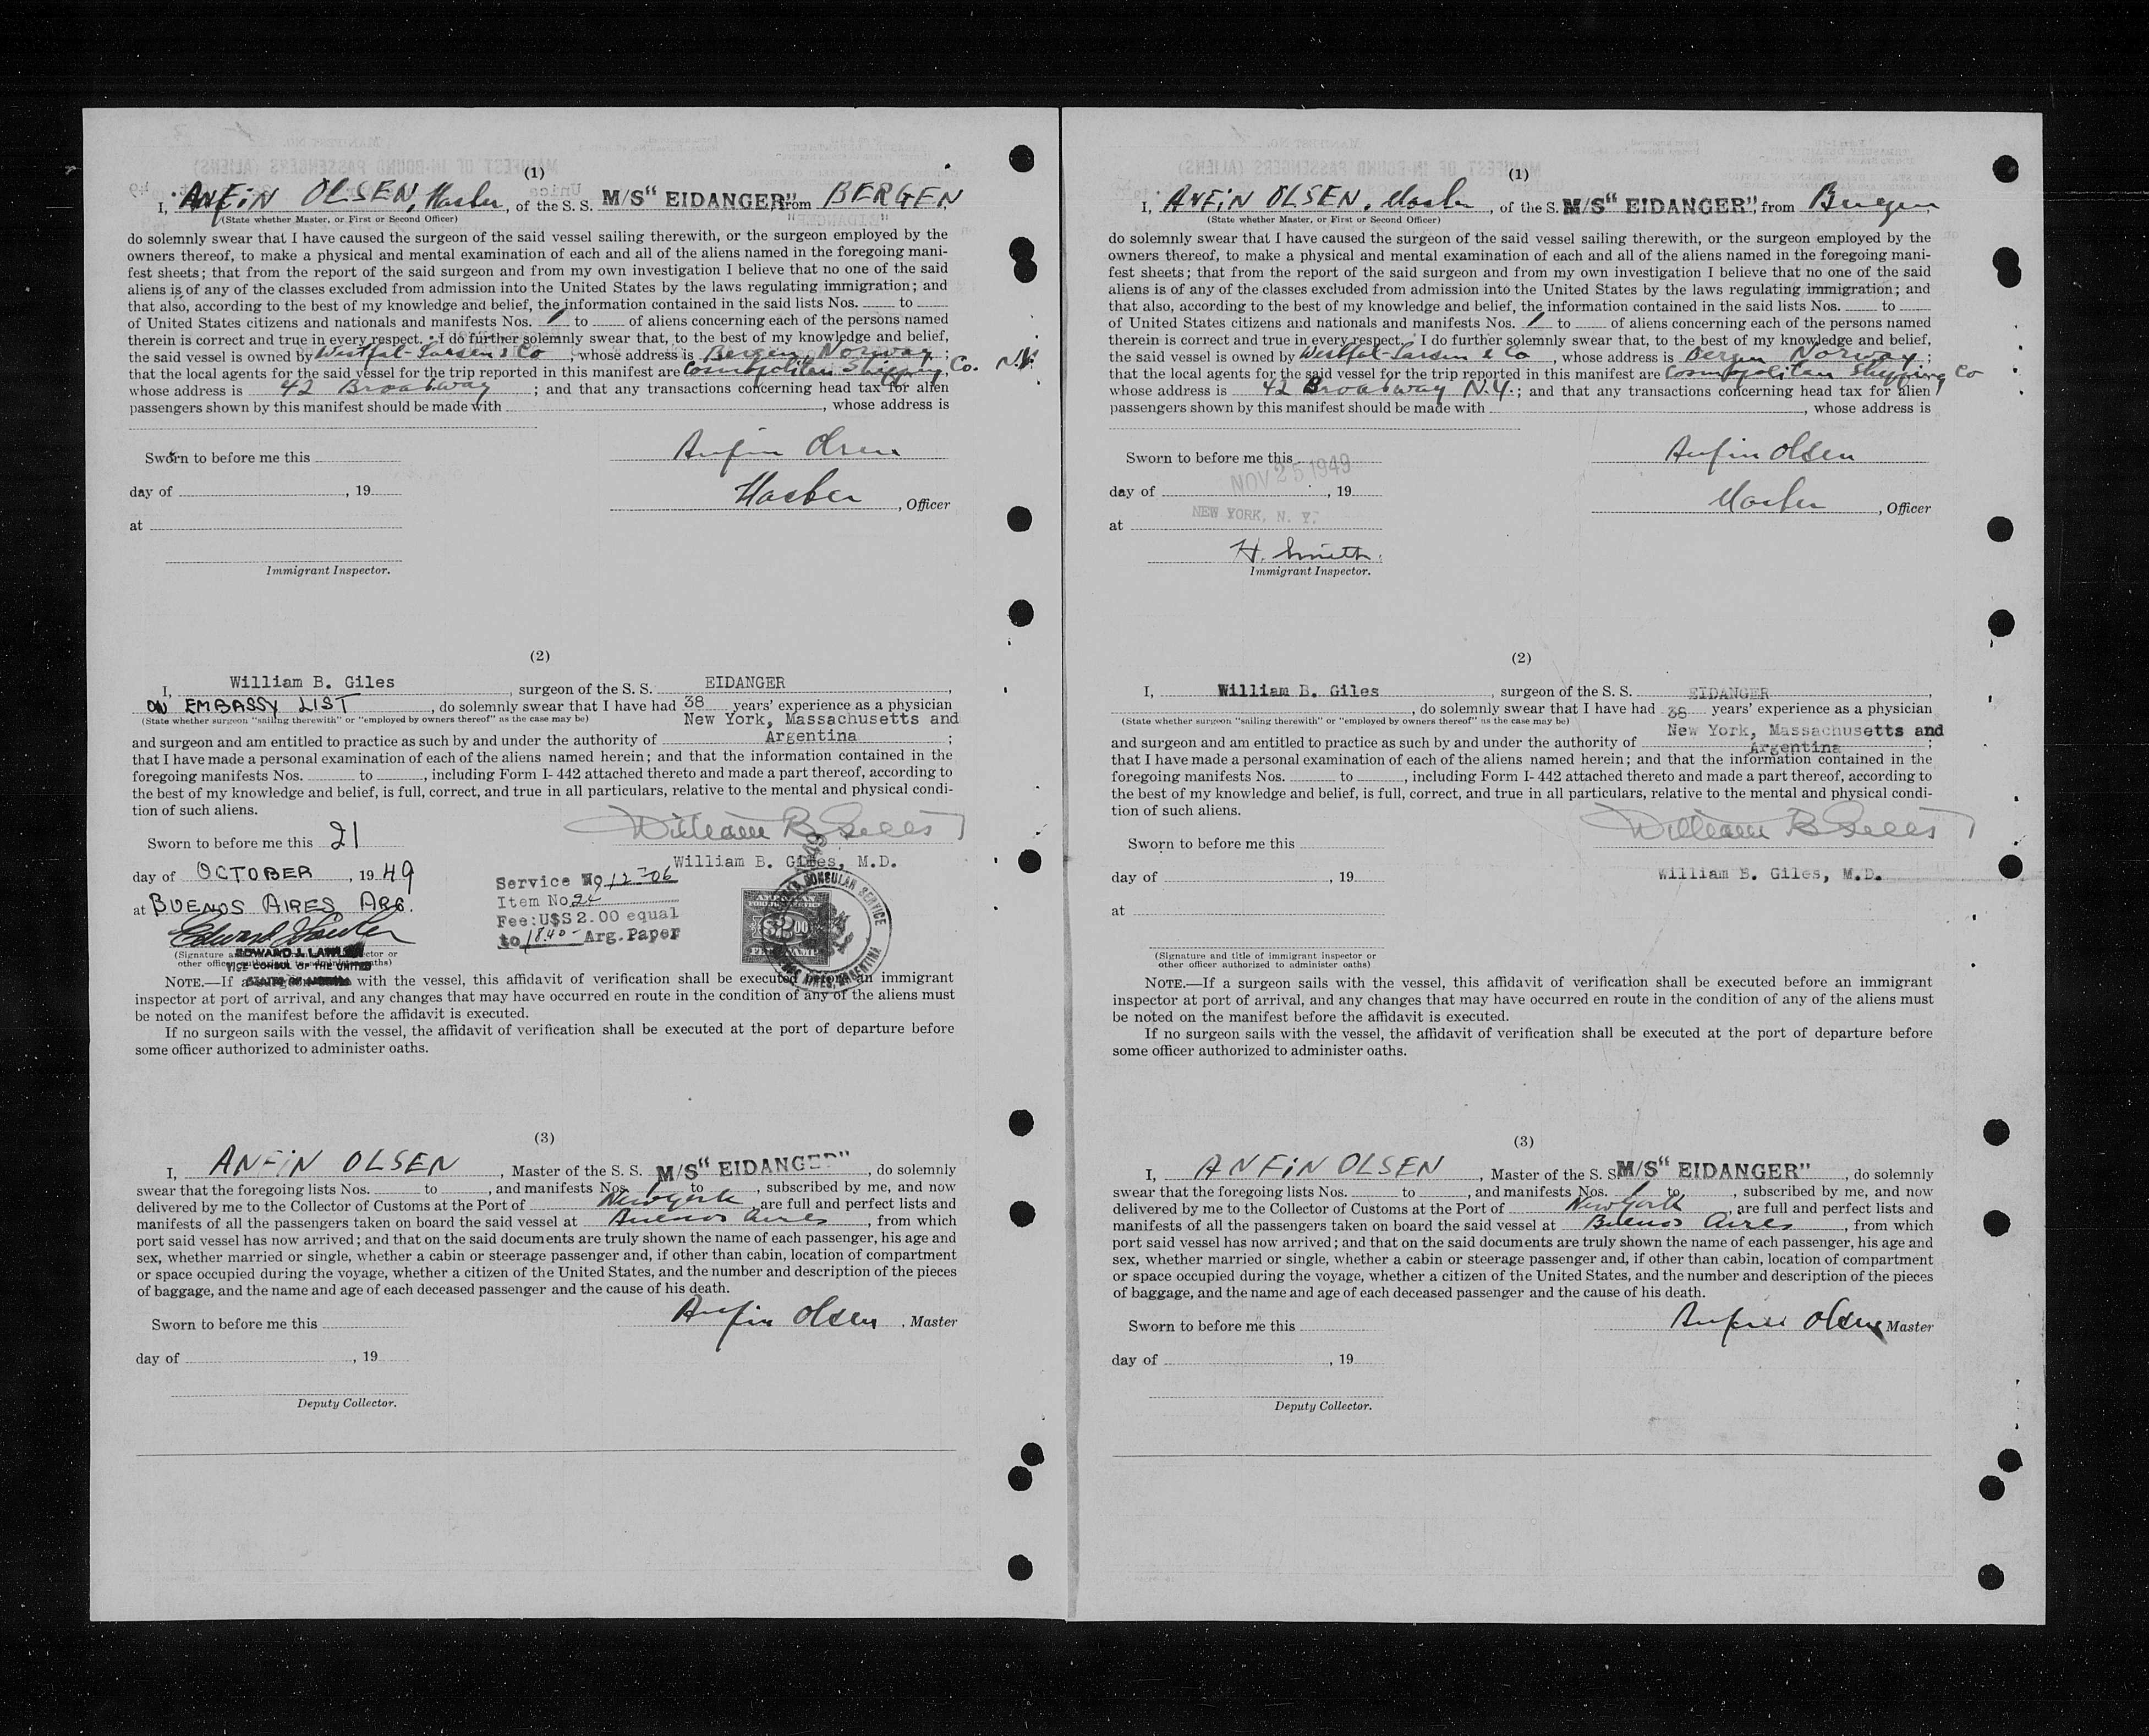 (1)
I, ANFIN OLSEN, Master, of the S. S. M/S "EIDANGER" from BERGEN
(State whether Master, or First or Second Officer)
do solemnly swear that I have caused the surgeon of the said vessel sailing therewith, or the surgeon employed by the
owners thereof, to make a physical and mental examination of each and all of the aliens named in the foregoing mani-
fest sheets; that from the report of the said surgeon and from my own investigation I believe that no one of the said
aliens is of any of the classes excluded from admission into the United States by the laws regulating immigration; and
that also, according to the best of my knowledge and belief, the information contained in the said lists Nos. to
of United States citizens and nationals and manifests Nos. 1 to of aliens concerning each of the persons named
therein is correct and true in every respect. I do further solemnly swear that, to the best of my knowledge and belief,
the said vessel is owned by Westfal-Larsen & Co, whose address is Bergen, Norway;
that the local agents for the said vessel for the trip reported in this manifest are Cosmopolitan Shipping, Co. N.Y.
whose address is 42 Broadway; and that any transactions concerning head tax for alien
passengers shown by this manifest should be made with , whose address is
Sworn to before me this
Anfin Olsen
day of , 19
Master, Officer
at
Immigrant Inspector.
(2)
I, William B. Giles, surgeon of the S. S. EIDANGER,
ON EMBASSY LIST, do solemnly swear that I have had 38 years' experience as a physician
(State whether surgeon "sailing therewith" or "employed by owners thereof" as the case may be)
New York, Massachusetts and
and surgeon and am entitled to practice as such by and under the authority of Argentina;
that I have made a personal examination of each of the aliens named herein; and that the information contained in the
foregoing manifests Nos. to , including Form I-442 attached thereto and made a part thereof, according to
the best of my knowledge and belief, is full, correct, and true in all particulars, relative to the mental and physical condi-
tion of such aliens.
William B Giles
Sworn to before me this 21
William B. Giles, M.D.
day of OCTOBER, 1949
at BUENOS AIRES ARG.
Service No 12706
Item No 24
Fee: U$S 2.00 equal
to 18.40 - Arg. Paper
AMERICAN
FOREIGN SERVICE
$2.00
FEE STAMP
CONSULAR SERVICE
BUENOS AIRES, ARGENTINA
Edward J Lawler
EDWARD J. LAWLER
VICE CONSUL OF THE UNITED
NOTE.—If with the vessel, this affidavit of verification shall be executed before an immigrant
inspector at port of arrival, and any changes that may have occurred en route in the condition of any of the aliens must
be noted on the manifest before the affidavit is executed.
If no surgeon sails with the vessel, the affidavit of verification shall be executed at the port of departure before
some officer authorized to administer oaths.
(3)
I, ANFIN OLSEN, Master of the S. S. M/S "EIDANGER", do solemnly
swear that the foregoing lists Nos. to , and manifests Nos. 1 to , subscribed by me, and now
delivered by me to the Collector of Customs at the Port of New York, are full and perfect lists and
manifests of all the passengers taken on board the said vessel at Buenos Aires, from which
port said vessel has now arrived; and that on the said documents are truly shown the name of each passenger, his age and
sex, whether married or single, whether a cabin or steerage passenger and, if other than cabin, location of compartment
or space occupied during the voyage, whether a citizen of the United States, and the number and description of the pieces
of baggage, and the name and age of each deceased passenger and the cause of his death.
Anfin Olsen, Master
Sworn to before me this
day of , 19
Deputy Collector.
(1)
I, ANFIN OLSEN, Master, of the S. M/S "EIDANGER", from Bergen
(State whether Master, or First or Second Officer)
do solemnly swear that I have caused the surgeon of the said vessel sailing therewith, or the surgeon employed by the
owners thereof, to make a physical and mental examination of each and all of the aliens named in the foregoing mani-
fest sheets; that from the report of the said surgeon and from my own investigation I believe that no one of the said
aliens is of any of the classes excluded from admission into the United States by the laws regulating immigration; and
that also, according to the best of my knowledge and belief, the information contained in the said lists Nos. to
of United States citizens and nationals and manifests Nos. 1 to of aliens concerning each of the persons named
therein is correct and true in every respect. I do further solemnly swear that, to the best of my knowledge and belief,
the said vessel is owned by Westfal-Larsen & Co, whose address is Bergen Norway;
that the local agents for the said vessel for the trip reported in this manifest are Cosmopolitan Shipping Co
whose address is 42 Broadway N.Y.; and that any transactions concerning head tax for alien
passengers shown by this manifest should be made with , whose address is
Sworn to before me this
Anfin Olsen
NOV 25 1949
day of , 19
Master, Officer
NEW YORK, N. Y.
at
H. Smith
Immigrant Inspector.
(2)
I, William B. Giles, surgeon of the S. S. EIDANGER,
, do solemnly swear that I have had 38 years' experience as a physician
(State whether surgeon "sailing therewith" or "employed by owners thereof" as the case may be)
New York, Massachusetts and
and surgeon and am entitled to practice as such by and under the authority of Argentina;
that I have made a personal examination of each of the aliens named herein; and that the information contained in the
foregoing manifests Nos. to , including Form I-442 attached thereto and made a part thereof, according to
the best of my knowledge and belief, is full, correct, and true in all particulars, relative to the mental and physical condi-
tion of such aliens.
William B Giles
Sworn to before me this
William B. Giles, M.D.
day of , 19
at
(Signature and title of immigrant inspector or
other officer authorized to administer oaths)
NOTE.—If a surgeon sails with the vessel, this affidavit of verification shall be executed before an immigrant
inspector at port of arrival, and any changes that may have occurred en route in the condition of any of the aliens must
be noted on the manifest before the affidavit is executed.
If no surgeon sails with the vessel, the affidavit of verification shall be executed at the port of departure before
some officer authorized to administer oaths.
(3)
I, ANFIN OLSEN, Master of the S. S. M/S "EIDANGER", do solemnly
swear that the foregoing lists Nos. to , and manifests Nos. 1 to , subscribed by me, and now
delivered by me to the Collector of Customs at the Port of New York, are full and perfect lists and
manifests of all the passengers taken on board the said vessel at Buenos Aires, from which
port said vessel has now arrived; and that on the said documents are truly shown the name of each passenger, his age and
sex, whether married or single, whether a cabin or steerage passenger and, if other than cabin, location of compartment
or space occupied during the voyage, whether a citizen of the United States, and the number and description of the pieces
of baggage, and the name and age of each deceased passenger and the cause of his death.
Anfin Olsen Master
Sworn to before me this
day of , 19
Deputy Collector.